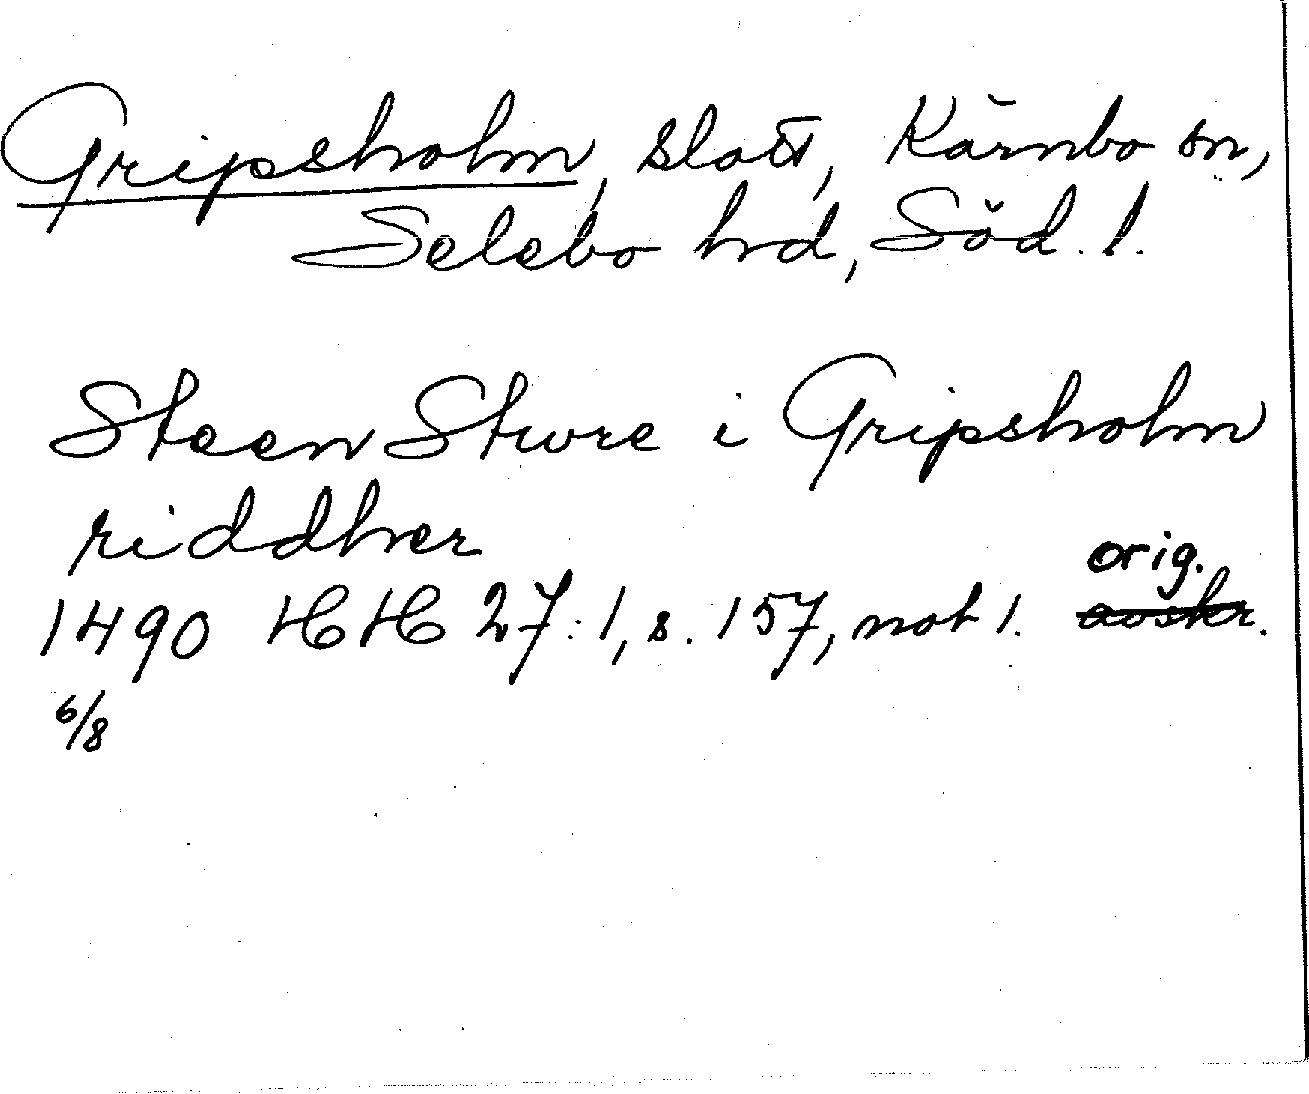 Gripsholm, slott, Kärnbo sn,
Selebo hrd, Söd. l.
Steen Stwre i Gripsholm
riddher
orig.
1490 HH 27:1, s. 157, not 1. avskr.
6/8